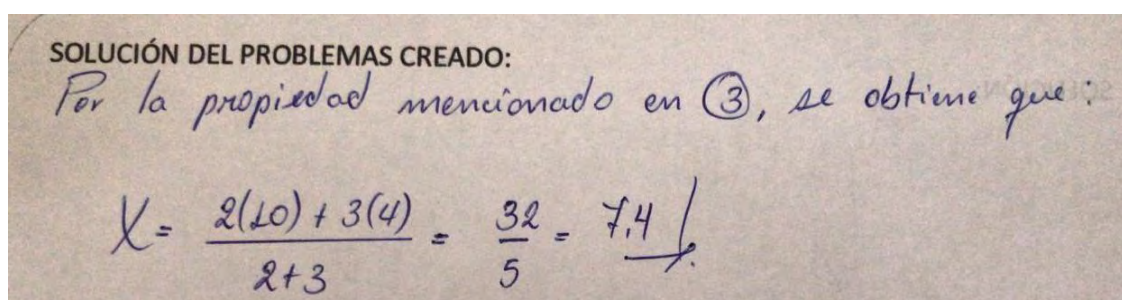 SOLUCIÓN DEL PROBLEMAS CREADO:
Por la propiedad mencionado en ③, se obtiene que:
X = 2(10) + 3(4) / 2+3 = 32/5 = 7,4